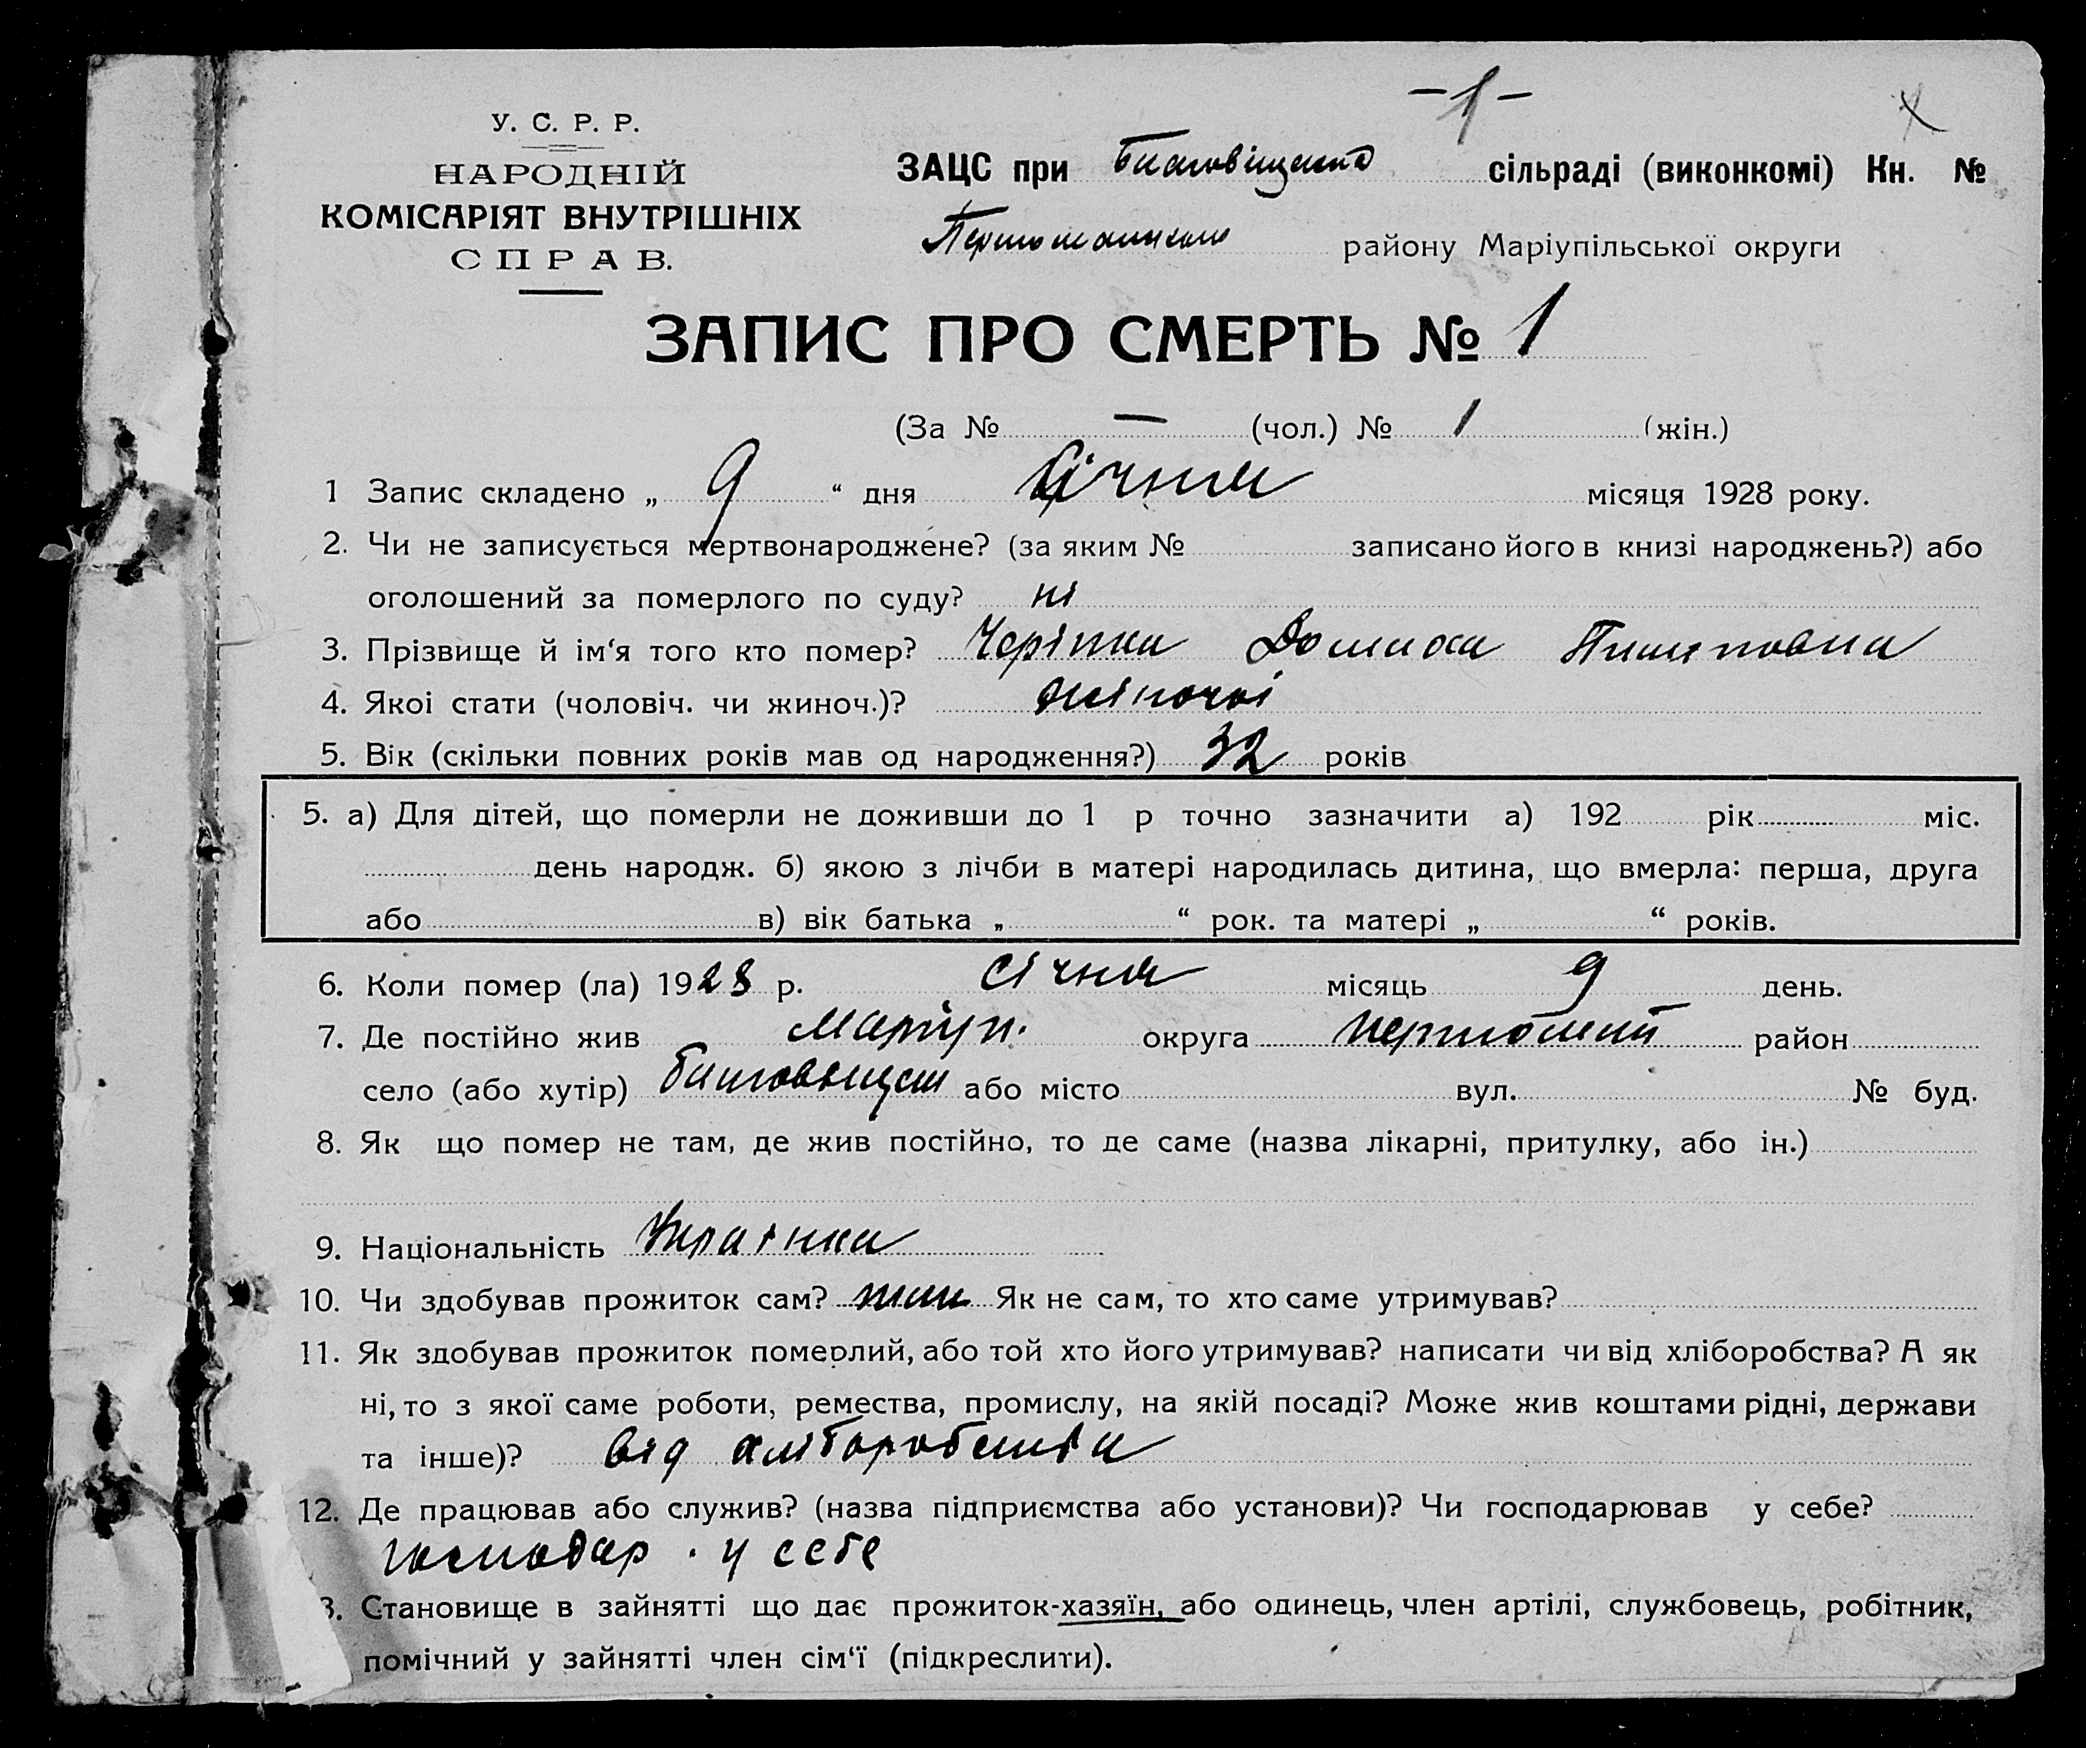 - 1 -
У. С. Р. Р.
НАРОДНІЙ
КОМІСАРІЯТ ВНУТРІШНІХ
СПРАВ.
ЗАЦС при сільраді (виконкомі) Кн. №
району Маріупільської округи
ЗАПИС ПРО СМЕРТЬ № 1
(За № — (чол.) № 1 (жін.)
1 Запис складено „ 9 “ дня Січня місяця 1928 року.
2. Чи не записується мертвонароджене? (за яким № записано його в книзі народжень?) або
оголошений за померлого по суду? ні
3. Прізвище й ім‘я того кто помер? Домаха Пилиповна
4. Якоі стати (чоловіч. чи жиноч.)? жіночоі
5. Вік (скільки повних років мав од народження?) 32 років
5. а) Для дітей, що померли не доживши до 1 р точно зазначити а) 192 рік міс.
день народж. б) якою з лічби в матері народилась дитина, що вмерла: перша, друга
або в) вік батька „ “ рок. та матері „ “ років.
6. Коли помер (ла) 1928 р. січня місяць 9 день.
7. Де постійно жив Маріуп. округа район
село (або хутір) або місто вул. № буд.
8. Як що помер не там, де жив постійно, то де саме (назва лікарні, притулку, або ін.)
9. Національність Украінка
10. Чи здобував прожиток сам? Як не сам, то хто саме утримував?
11. Як здобував прожиток померлий, або той хто його утримував? написати чи від хліборобства? А як
ні, то з якої саме роботи, ремества, промислу, на якій посаді? Може жив коштами рідні, держави
та інше)? від хліборобства
12. Де працював або служив? (назва підприємства або установи)? Чи господарював у себе?
господар. у себе
3. Становище в зайнятті що дає прожиток-хазяїн, або одинець, член артілі, службовець, робітник,
помічний у зайнятті член сім‘ї (підкреслити).